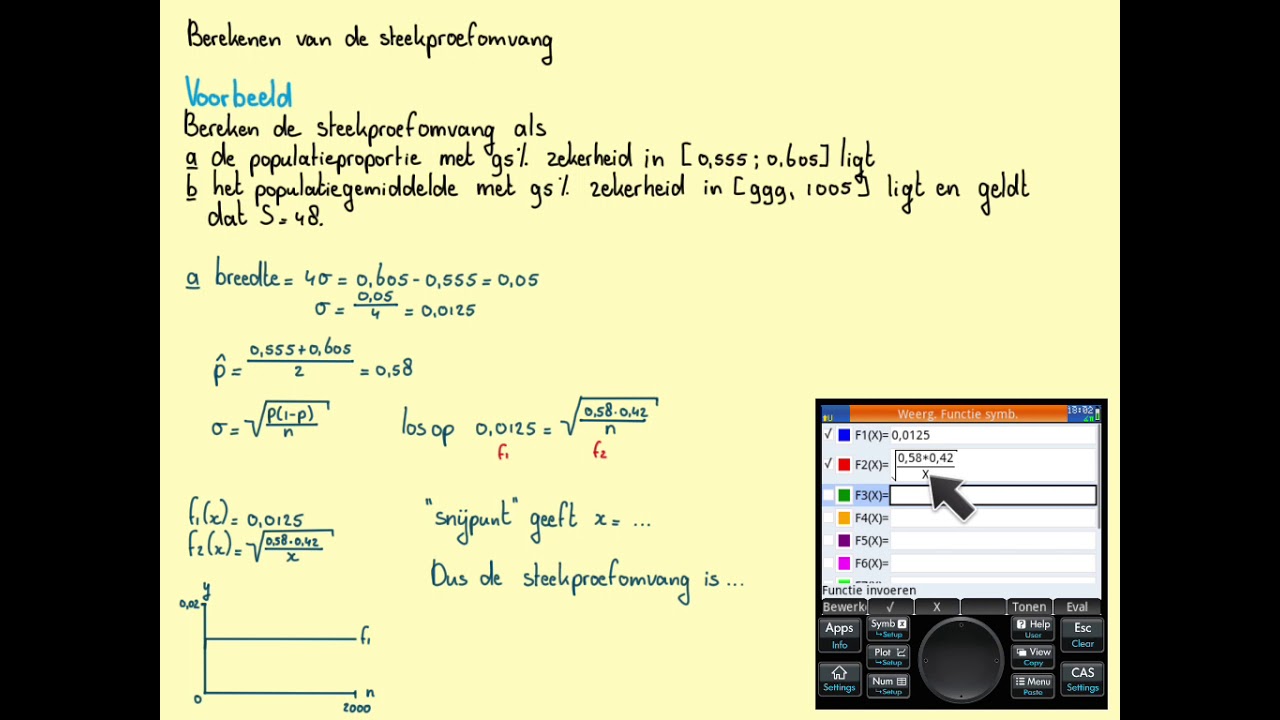 Berekenen van de steekproefomvang
Voorbeeld
Bereken de steekproefomvang als
a de populatieproportie met 95% zekerheid in [0,555 ; 0,605] ligt
b het populatiegemiddelde met 95% zekerheid in [999, 1005] ligt en geldt
dat S=48.
a breedte = 4σ = 0,605 - 0,555 = 0,05
σ = 0,05/4 = 0,0125
p̂ = (0,555+0,605)/2 = 0,58
σ = √(p(1-p)/n) los op 0,0125 = √(0,58·0,42/n)
f₁ f₂
f₁(x) = 0,0125
f₂(x) = √(0,58·0,42/x)
"snijpunt" geeft x = ...
Dus de steekproefomvang is ...
y
0,02
f₁
0
n
2000
Weerg. Functie symb.
18:02
F1(X)= 0,0125
F2(X)= √(0,58*0,42/X)
F3(X)=
F4(X)=
F5(X)=
F6(X)=
Functie invoeren
Bewerk √ X Tonen Eval
Apps
Info
Symb
↪Setup
Help
User
Esc
Clear
Plot
↪Setup
View
Copy
Settings
Num
↪Setup
Menu
Paste
CAS
Settings